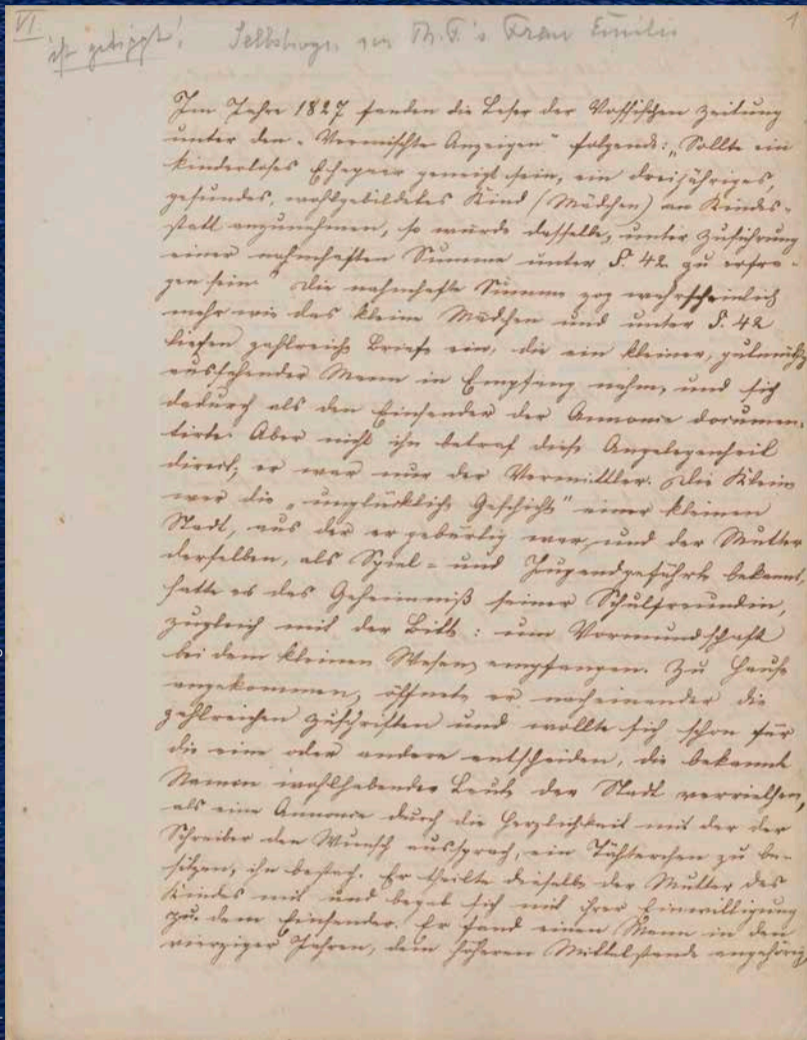 VI. 1
ist getippt! Selbstbiogr. von Th. F.'s Frau Emilie
Im Jahre 1827 fanden die Leser der Vossischen Zeitung
unter den „Vermischte Anzeigen" folgende: „Sollte ein
kinderloses Ehepaar geneigt sein, ein dreijähriges,
gesundes, wohlgebildetes Kind (Mädchen) an Kindes-
statt anzunehmen, so würde dasselbe, unter Zusicherung
einer nahmhaften Summe unter S. 42 zu erfra-
gen sein." Die nahmhafte Summe zog wahrscheinlich
mehr wie das kleine Mädchen und unter S. 42
liefen zahlreiche Briefe ein, die ein kleiner, gutmüthig
aussehender Mann in Empfang nahm, und sich
dadurch als den Einsender der Annonce documen-
tirte. Aber nicht ihn betraf diese Angelegenheit
direct; er war nur der Vermittler. Die Kleine
war die „unglückliche Geschichte" einer kleinen
Stadt, aus der er gebürtig war, und der Mutter
derselben, als Spiel- und Jugendgefährte bekannt,
hatte er das Geheimniß seiner Schulfreundin,
zugleich mit der Bitte: um Vormundschaft
bei dem kleinen Wesen, empfangen. Zu Hause
angekommen, öffnete er nacheinander die
zahlreichen Zuschriften und wollte sich schon für
die eine oder andere entscheiden, die bekannte
Namen wohlhabender Leute der Stadt verriethen,
als eine Annonce durch die Herzlichkeit mit der der
Schreiber den Wunsch aussprach, ein Töchterchen zu be-
sitzen, ihn bestach. Er theilte dieselbe der Mutter des
Kindes mit und begab sich mit ihrer Einwilligung
zu dem Einsender. Er fand einen Mann in den
vierziger Jahren, dem höheren Mittelstande angehörig,